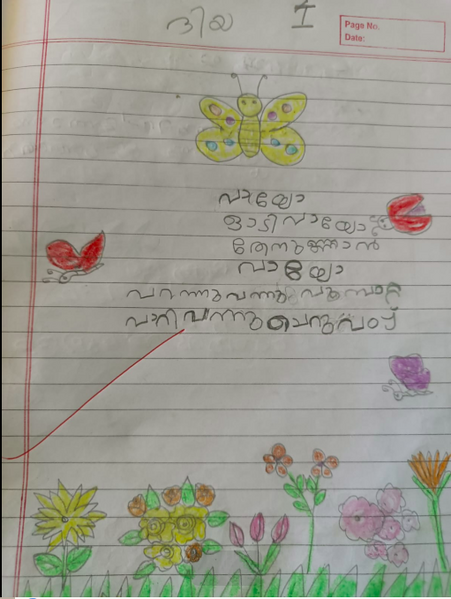 ദിയ I
Page No.
Date:
വായോ
ഓടി വായോ
തേനുണ്ണാൻ
വായോ
പറന്നു വന്നു പൂമ്പാറ്റ
പാറി വന്നു ചെറുവണ്ട്